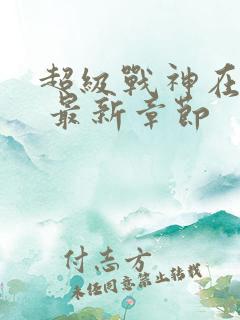 超級戰神在
最新章節
付志方
未经同意禁止转载